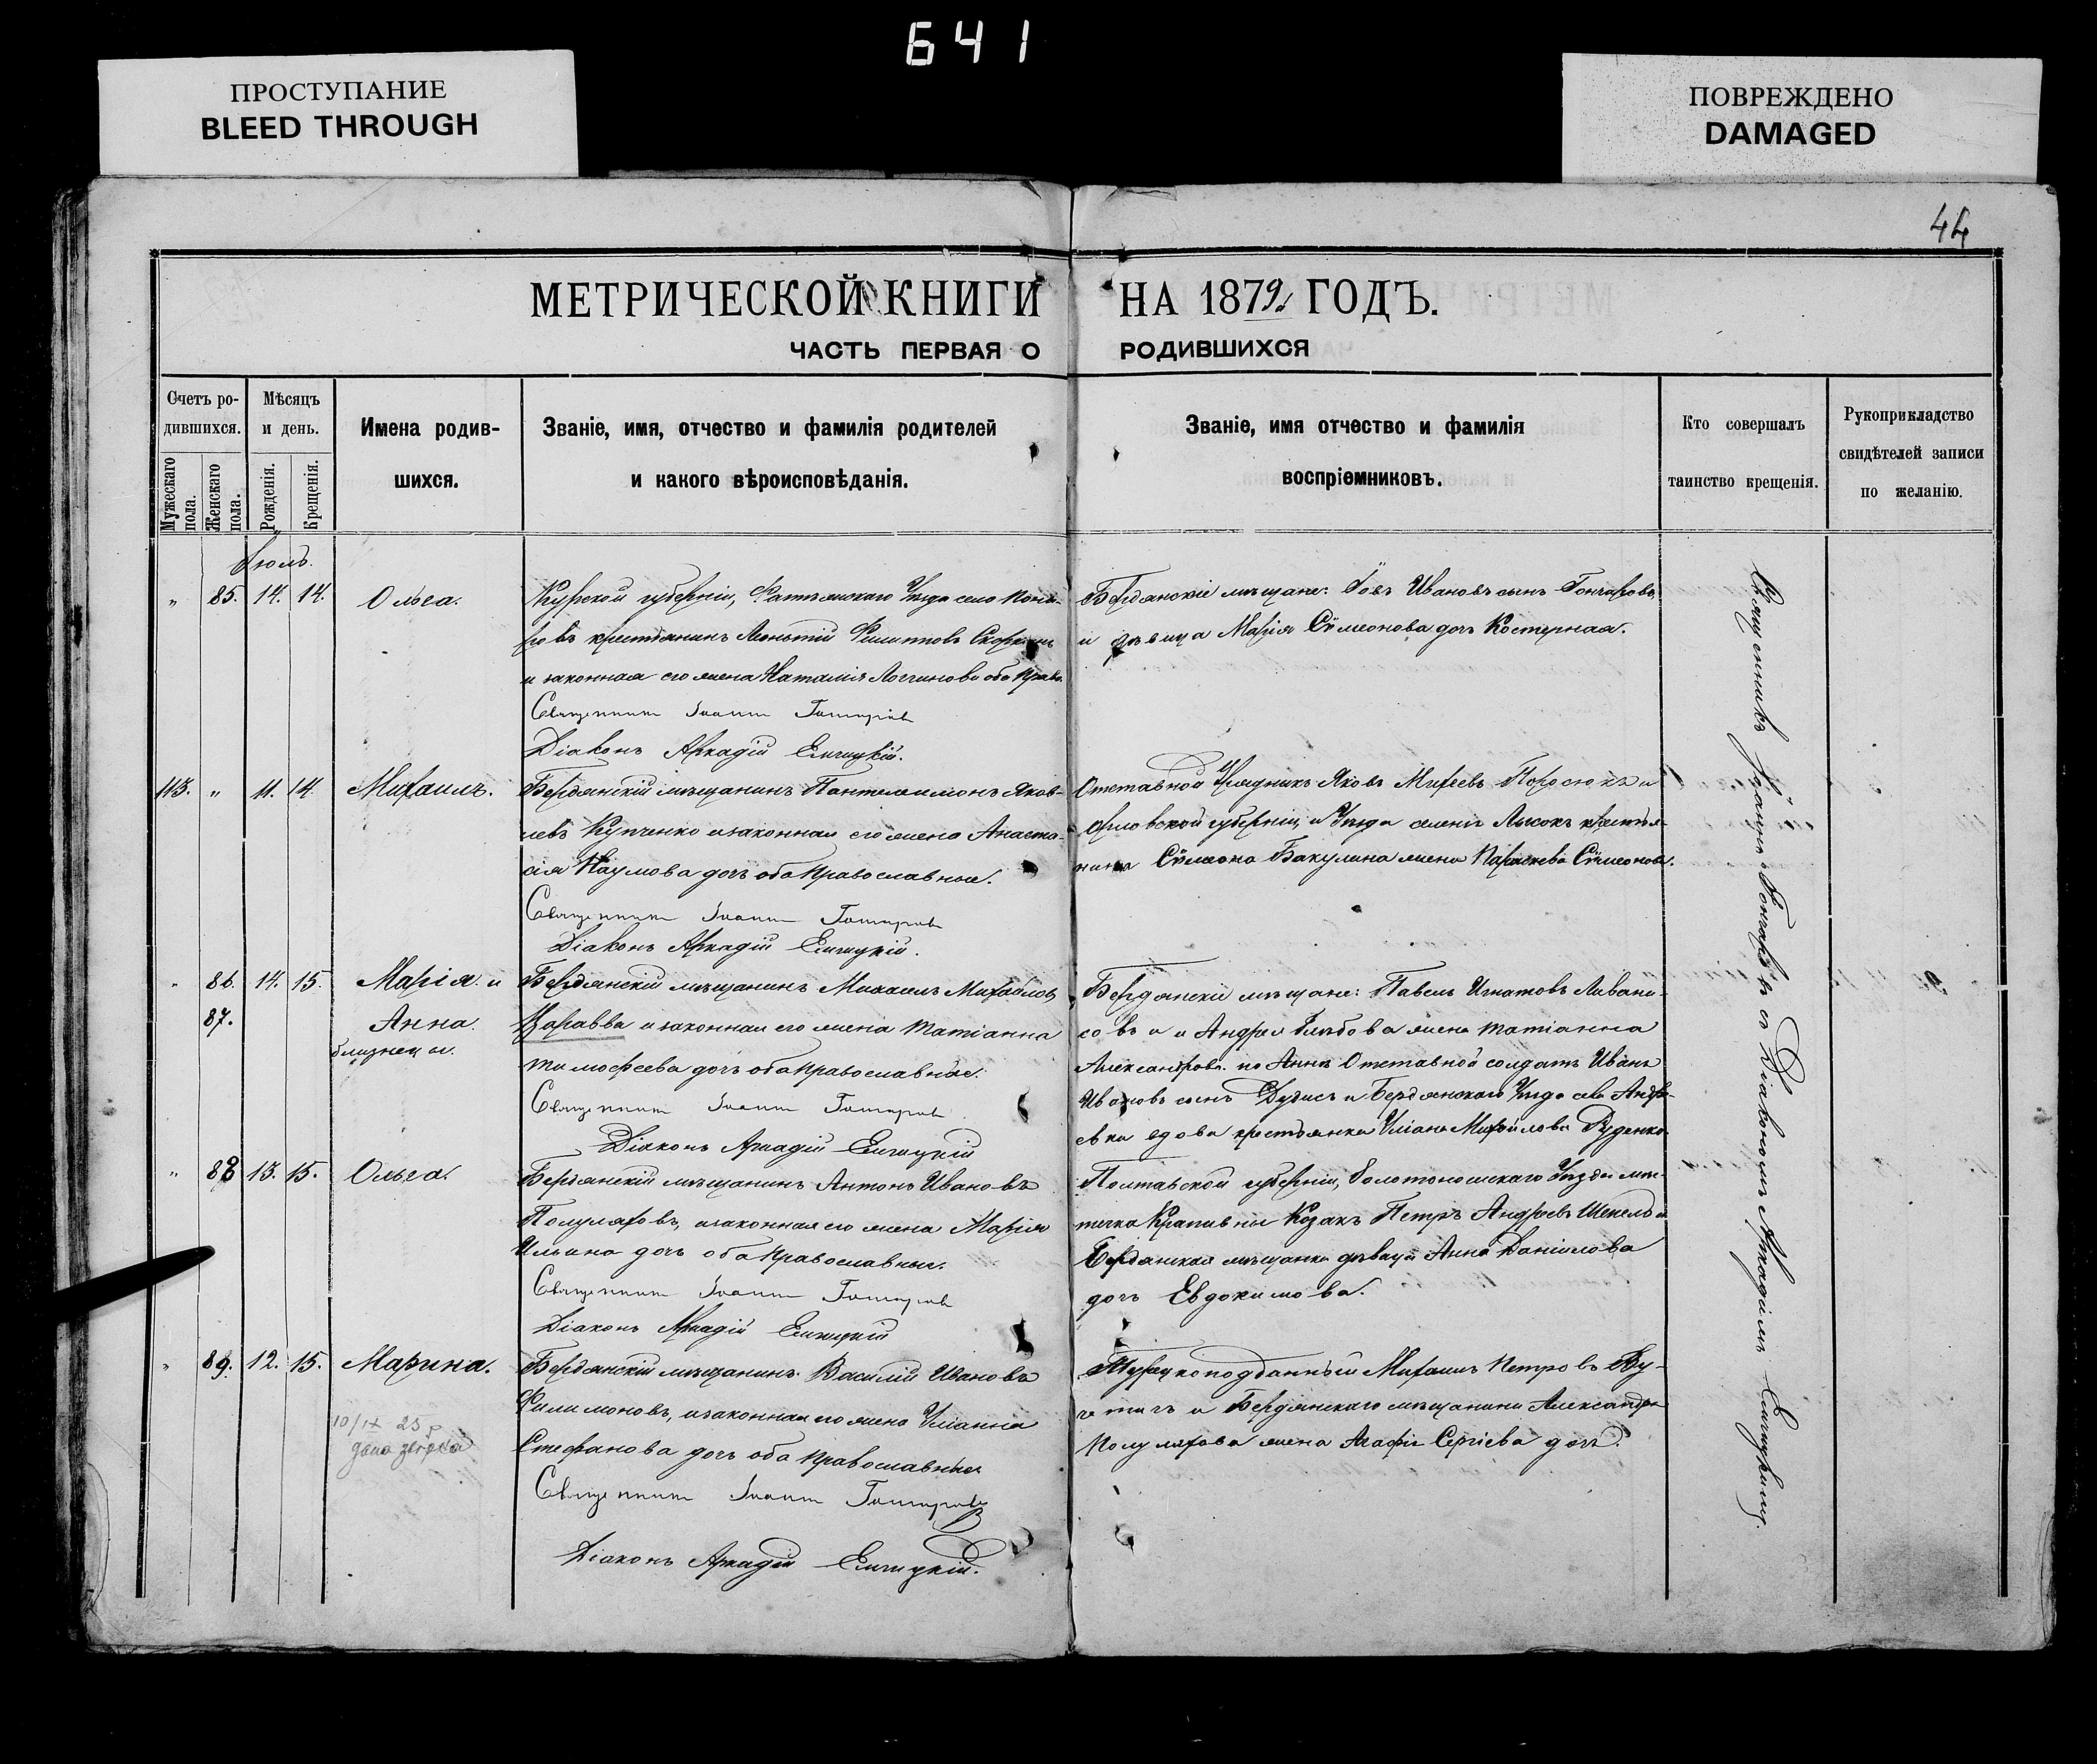 641
ПРОСТУПАНИЕ
BLEED THROUGH
ПОВРЕЖДЕНО
DAMAGED
44
МЕТРИЧЕСКОЙ КНИГИ НА 1879 ГОДЪ.
ЧАСТЬ ПЕРВАЯ О РОДИВШИХСЯ
Счетъ ро-
дившихся.
Мужескаго
пола.
Женскаго
пола.
Мѣсяцъ
и день.
Рожденія.
Крещенія.
Имена родив-
шихся.
Званіе, имя, отчество и фамилія родителей
и какого вѣроисповѣданія.
Званіе, имя отчество и фамилія
воспріемниковъ.
Кто совершалъ
таинство крещенія.
Рукоприкладство
свидѣтелей записи
по желанію.
Іюль.
" 85. 14. 14. Ольга.
Курской губерніи, Фатежскаго Уѣзда село
крестьянинъ Леонтій Филиповъ
и законная его жена Наталія Логгинова оба Правос.
Священникъ Іоаннъ Гончаровъ
Діаконъ Аркадій
Бердянскіе мѣщане: Іовъ Ивановъ сынъ Гончаровъ
и дѣвица Марія Сѵмеонова дочь Костерная.
113. " 11. 14. Михаилъ.
Бердянскій мѣщанинъ Пантелеимонъ Яков-
левъ Купченко и законная его жена Анаста-
сія Наумова дочь оба Православные.
Священникъ Іоаннъ Гончаровъ
Діаконъ Аркадій
Отставной Урядникъ Яковъ Михеевъ и
Орловской губерніи, и Уѣзда селенія крестья-
нина Сѵмеона Бакулина жена Параскева Сѵмеонова.
" 86. 14. 15. Марія и
87. Анна.
близнецы.
Бердянскій мѣщанинъ Михаилъ Михайловъ
и законная его жена Татіанна
Тимофеева дочь оба Православные.
Священникъ Іоаннъ Гончаровъ
Діаконъ Аркадій
Бердянскіе мѣщане: Павелъ Игнатовъ Ливани-
совъ и Андрея Глѣбова жена Татіанна
Александрова. по Аннѣ Отставной солдатъ Иванъ
Ивановъ сынъ и Бердянскаго Уѣзда села Андре-
евки вдова крестьянка Уліана Михайлова Руденко
" 88 13. 15. Ольга.
Бердянскій мѣщанинъ Антонъ Ивановъ
Полуляховъ, и законная его жена Марія
Ильина дочь оба Православные.
Священникъ Іоаннъ Гончаровъ
Діаконъ Аркадій
Полтавской губерніи, Золотоношскаго Уѣзда мѣс-
течка Крапивны Козакъ Петръ Андреевъ и
Бердянская мѣщанка дѣвица Анна Даніилова
дочь Евдокимова.
" 89. 12. 15. Марина.
10/IX 23 р
Бердянскій мѣщанинъ Василій Ивановъ
Филимоновъ, и законная его жена Уліанна
Стефанова дочь оба Православные
Священникъ Іоаннъ Гончаровъ
Діаконъ Аркадій
Турецкоподданный Михаилъ Петровъ Ву-
четичъ и Бердянскаго мѣщанина Александра
Полуляхова жена Агафія Сергіева дочь.
Священникъ Іоаннъ Гончаровъ съ Діакономъ Аркадіемъ